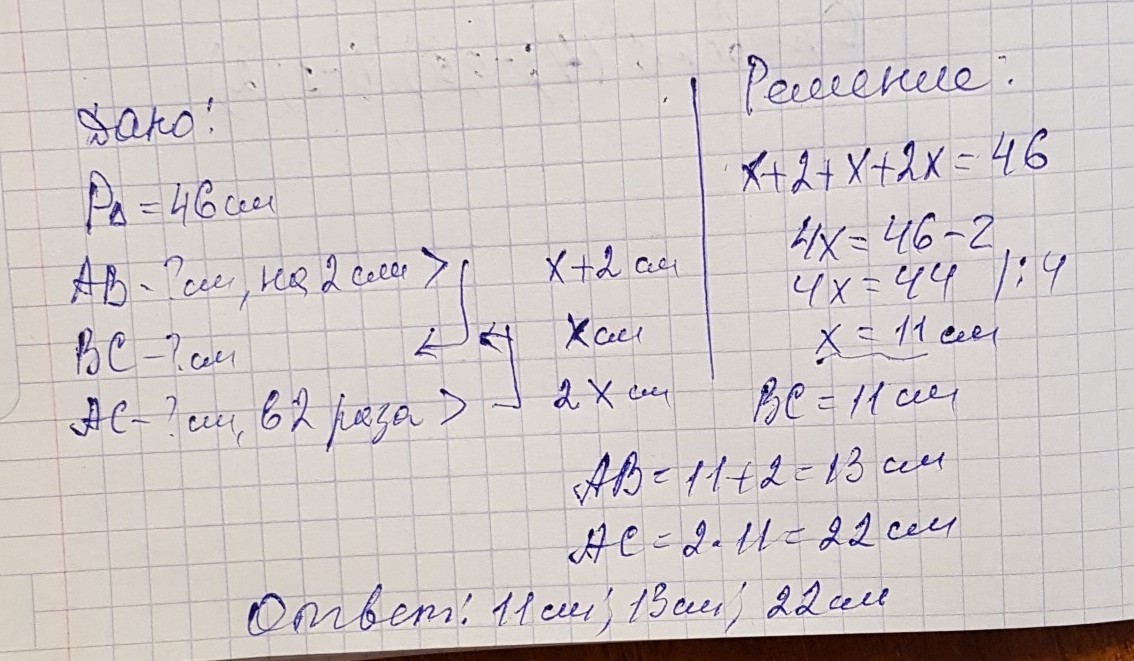 Дано:
P△ = 46 см
AB - ? см, на 2 см >
x+2 см
BC - ? см
x см
AC - ? см, в 2 раза >
2x см
Решение:
x+2+x+2x=46
4x=46-2
4x=44 /:4
x=11 см
BC=11 см
AB=11+2=13 см
AC=2·11=22 см
Ответ: 11 см; 13 см; 22 см